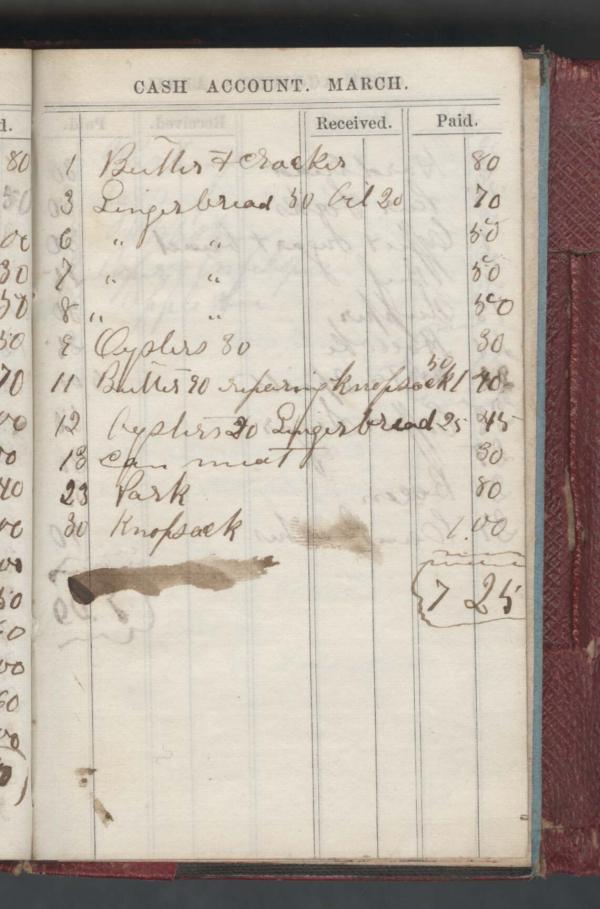 CASH ACCOUNT. MARCH.
Received. Paid.
1 Butter & Cracker 80
3 Gingerbread 50 Oil 20 70
6 " " 50
7 " " 50
8 " " 50
9 Oysters 30 30
11 Butter 90 repairing Knopsack 50 1 40
12 Oysters 20 Gingerbread 25 45
13 can meat 30
23 Pork 80
30 Knopsack 1.00
7 25